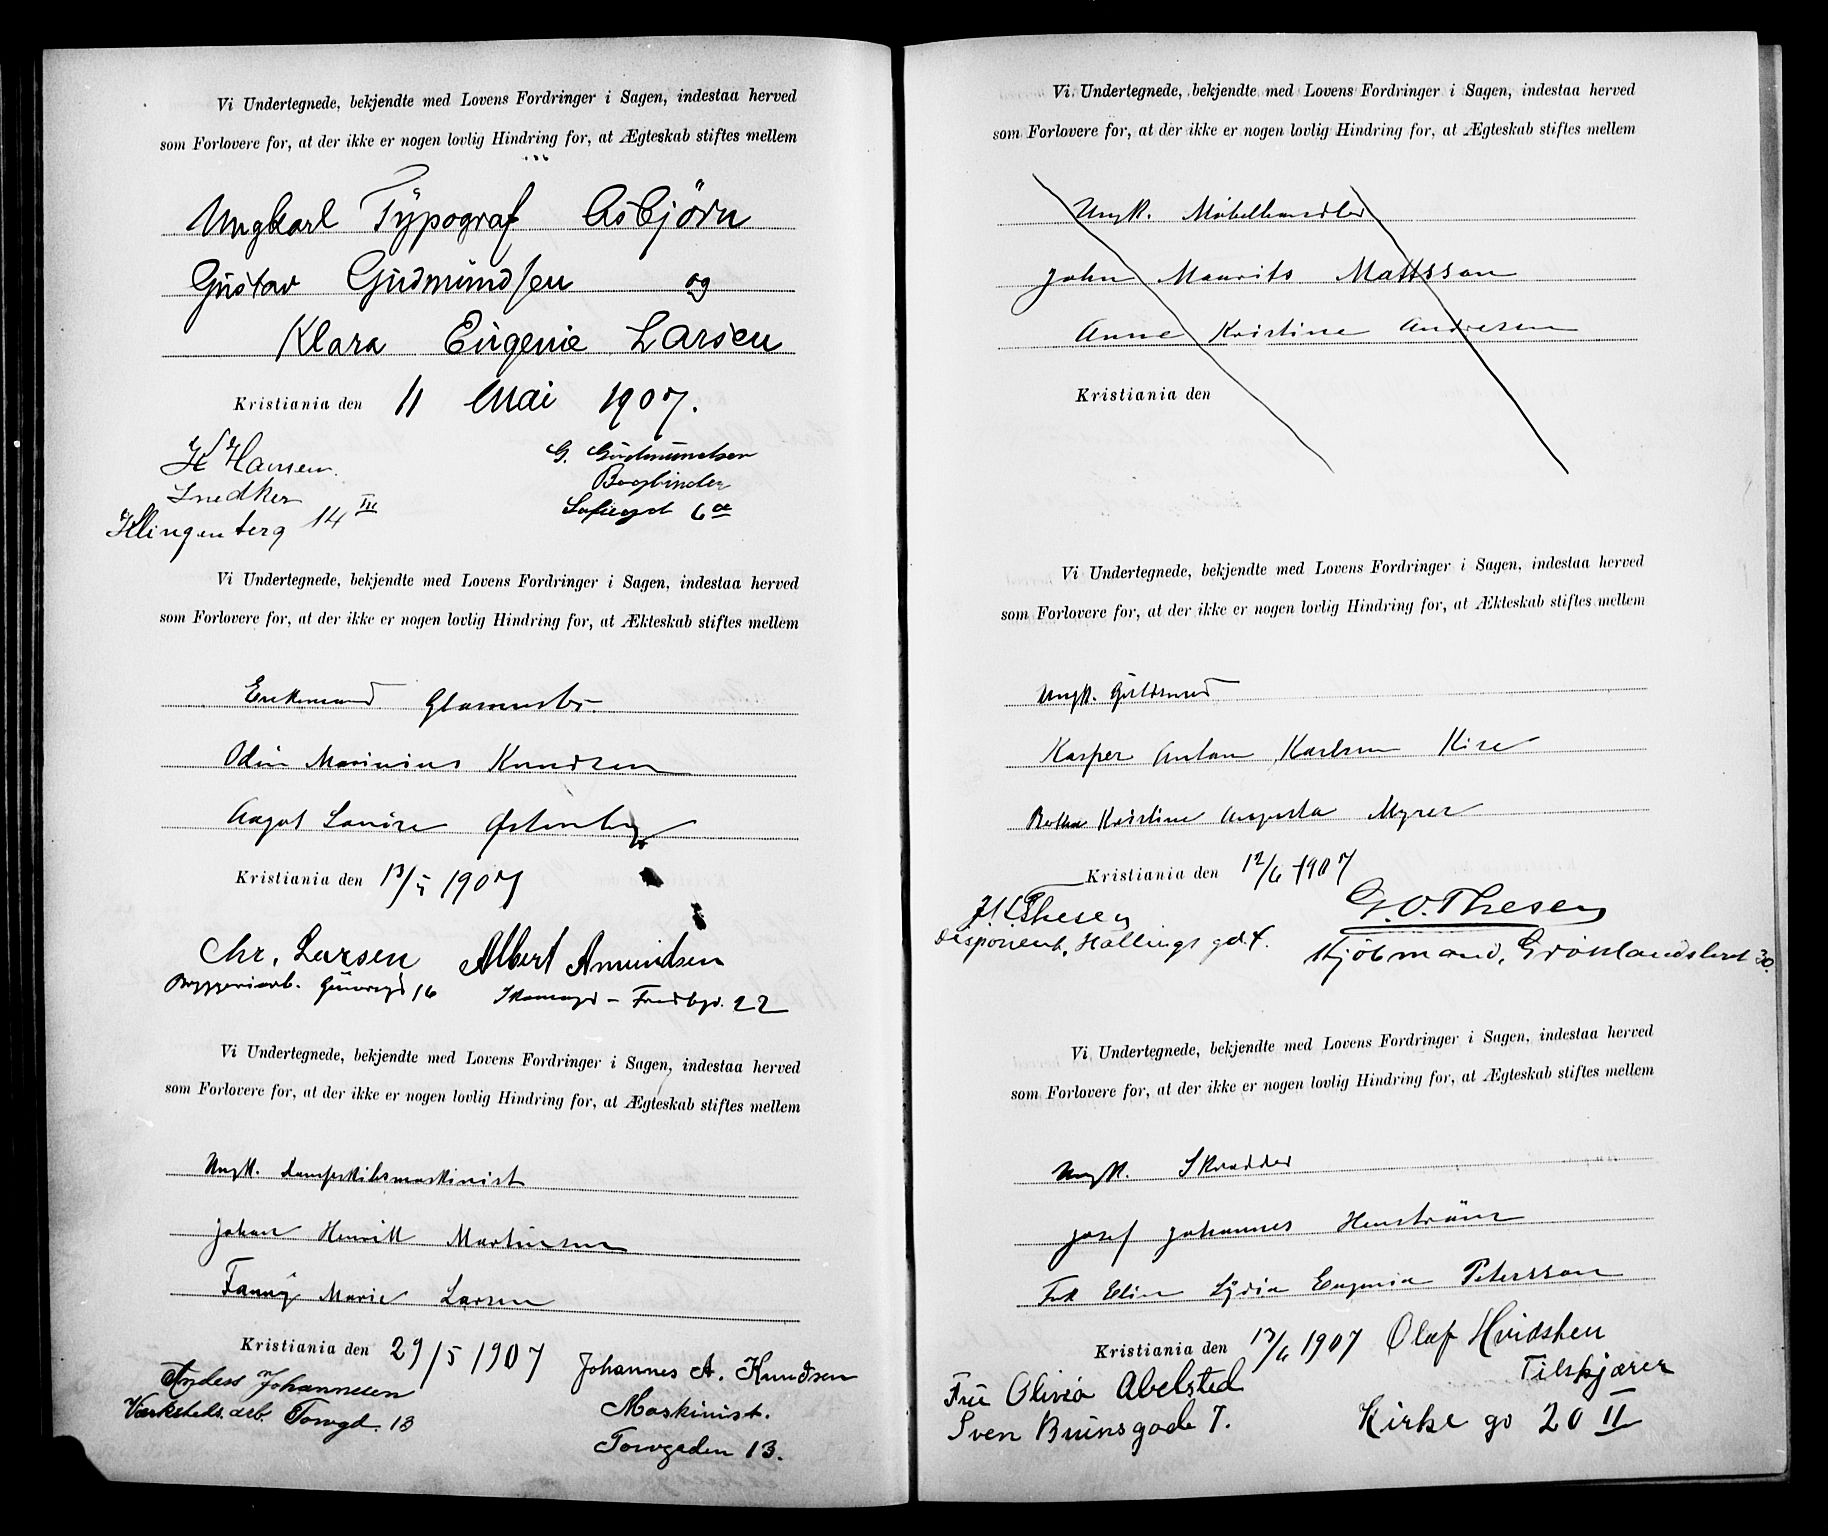 Vi Undertegnede, bekjendte med Lovens Fordringer i Sagen, indestaa herved
som Forlovere for, at der ikke er nogen lovlig Hindring for, at Ægteskab stiftes mellem
Ungkarl Typograf Asbjørn
Gustav Gudmundsen og
Klara Eugenie Larsen
Kristiania den 11 Mai 1907.
K Hansen
Snedker
Klingenberg 14 III
G. Gudmundsen
Bogbinder
Sofiegt 6 a
Vi Undertegnede, bekjendte med Lovens Fordringer i Sagen, indestaa herved
som Forlovere for, at der ikke er nogen lovlig Hindring for, at Ækteskab stiftes mellem
Enkemand Glasmester
Odin Marinius Knudsen
Aagot Louise Østenby
Kristiania den 13/5 1907
Chr. Larsen Albert Amundsen
Bryggeriarb. 16 Fredbgd. 22
Vi Undertegnede, bekjendte med Lovens Fordringer i Sagen, indestaa herved
som Forlovere for, at der ikke er nogen lovlig Hindring for, at Ægteskab stiftes mellem
Ungk. Dampskibsmaskinist
Johan Henrik Martinsen
Fanny Marie Larsen
Kristiania den 29/5 1907
Anders Johannesen
Værksteds. arb. Torvgd. 13
Johannes A. Knudsen
Maskinist.
Torvgaden 13.
Vi Undertegnede, bekjendte med Lovens Fordringer i Sagen, indestaa herved
som Forlovere for, at der ikke er nogen lovlig Hindring for, at Ægteskab stiftes mellem
Ungk. Møbelhandler
John Maurits Mattsson
Anne Kristine Andresen
Kristiania den
Vi Undertegnede, bekjendte med Lovens Fordringer i Sagen, indestaa herved
som Forlovere for, at der ikke er nogen lovlig Hindring for, at Ækteskab stiftes mellem
Ungk. Guldsmed
Kasper Anton Karlsen Kise
Kristine Augusta Myrer
Kristiania den 12/6 1907
Thesen
Disponent, Hallings gd. 4.
G. O. Thesen
Kjøbmand, Grønlandsleret 30.
Vi Undertegnede, bekjendte med Lovens Fordringer i Sagen, indestaa herved
som Forlovere for, at der ikke er nogen lovlig Hindring for, at Ægteskab stiftes mellem
Ungk. Skrædder
Josef Johannes Henström
Frk Elin Lydia Eugenia Petersson
Kristiania den 13/6 1907
Fru Olivia Abelsted
Sven Bruns gade 7.
Olaf Hvidsten
Tilskjærer
Kirke gd 20 II